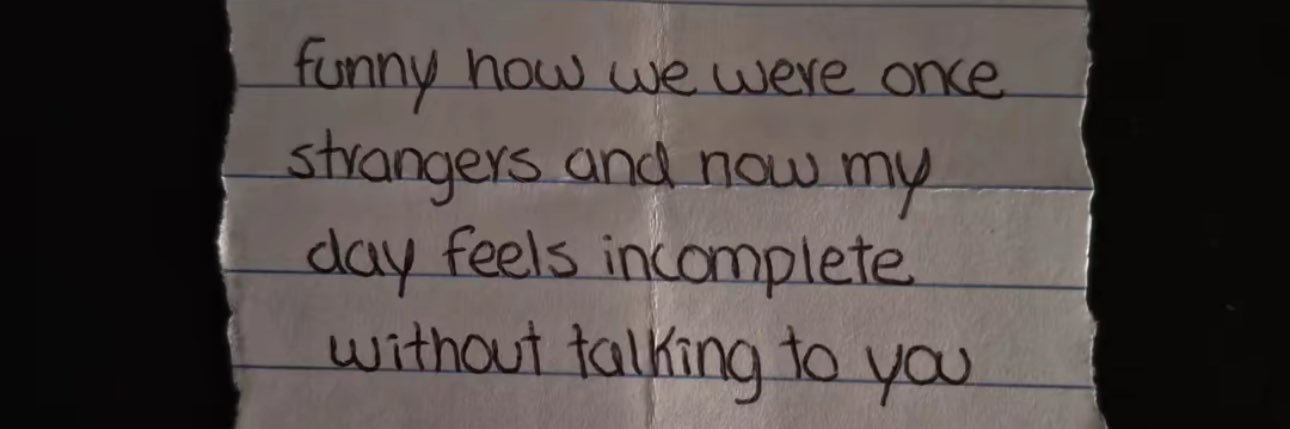 funny how we were once
strangers and now my
day feels incomplete
without talking to you